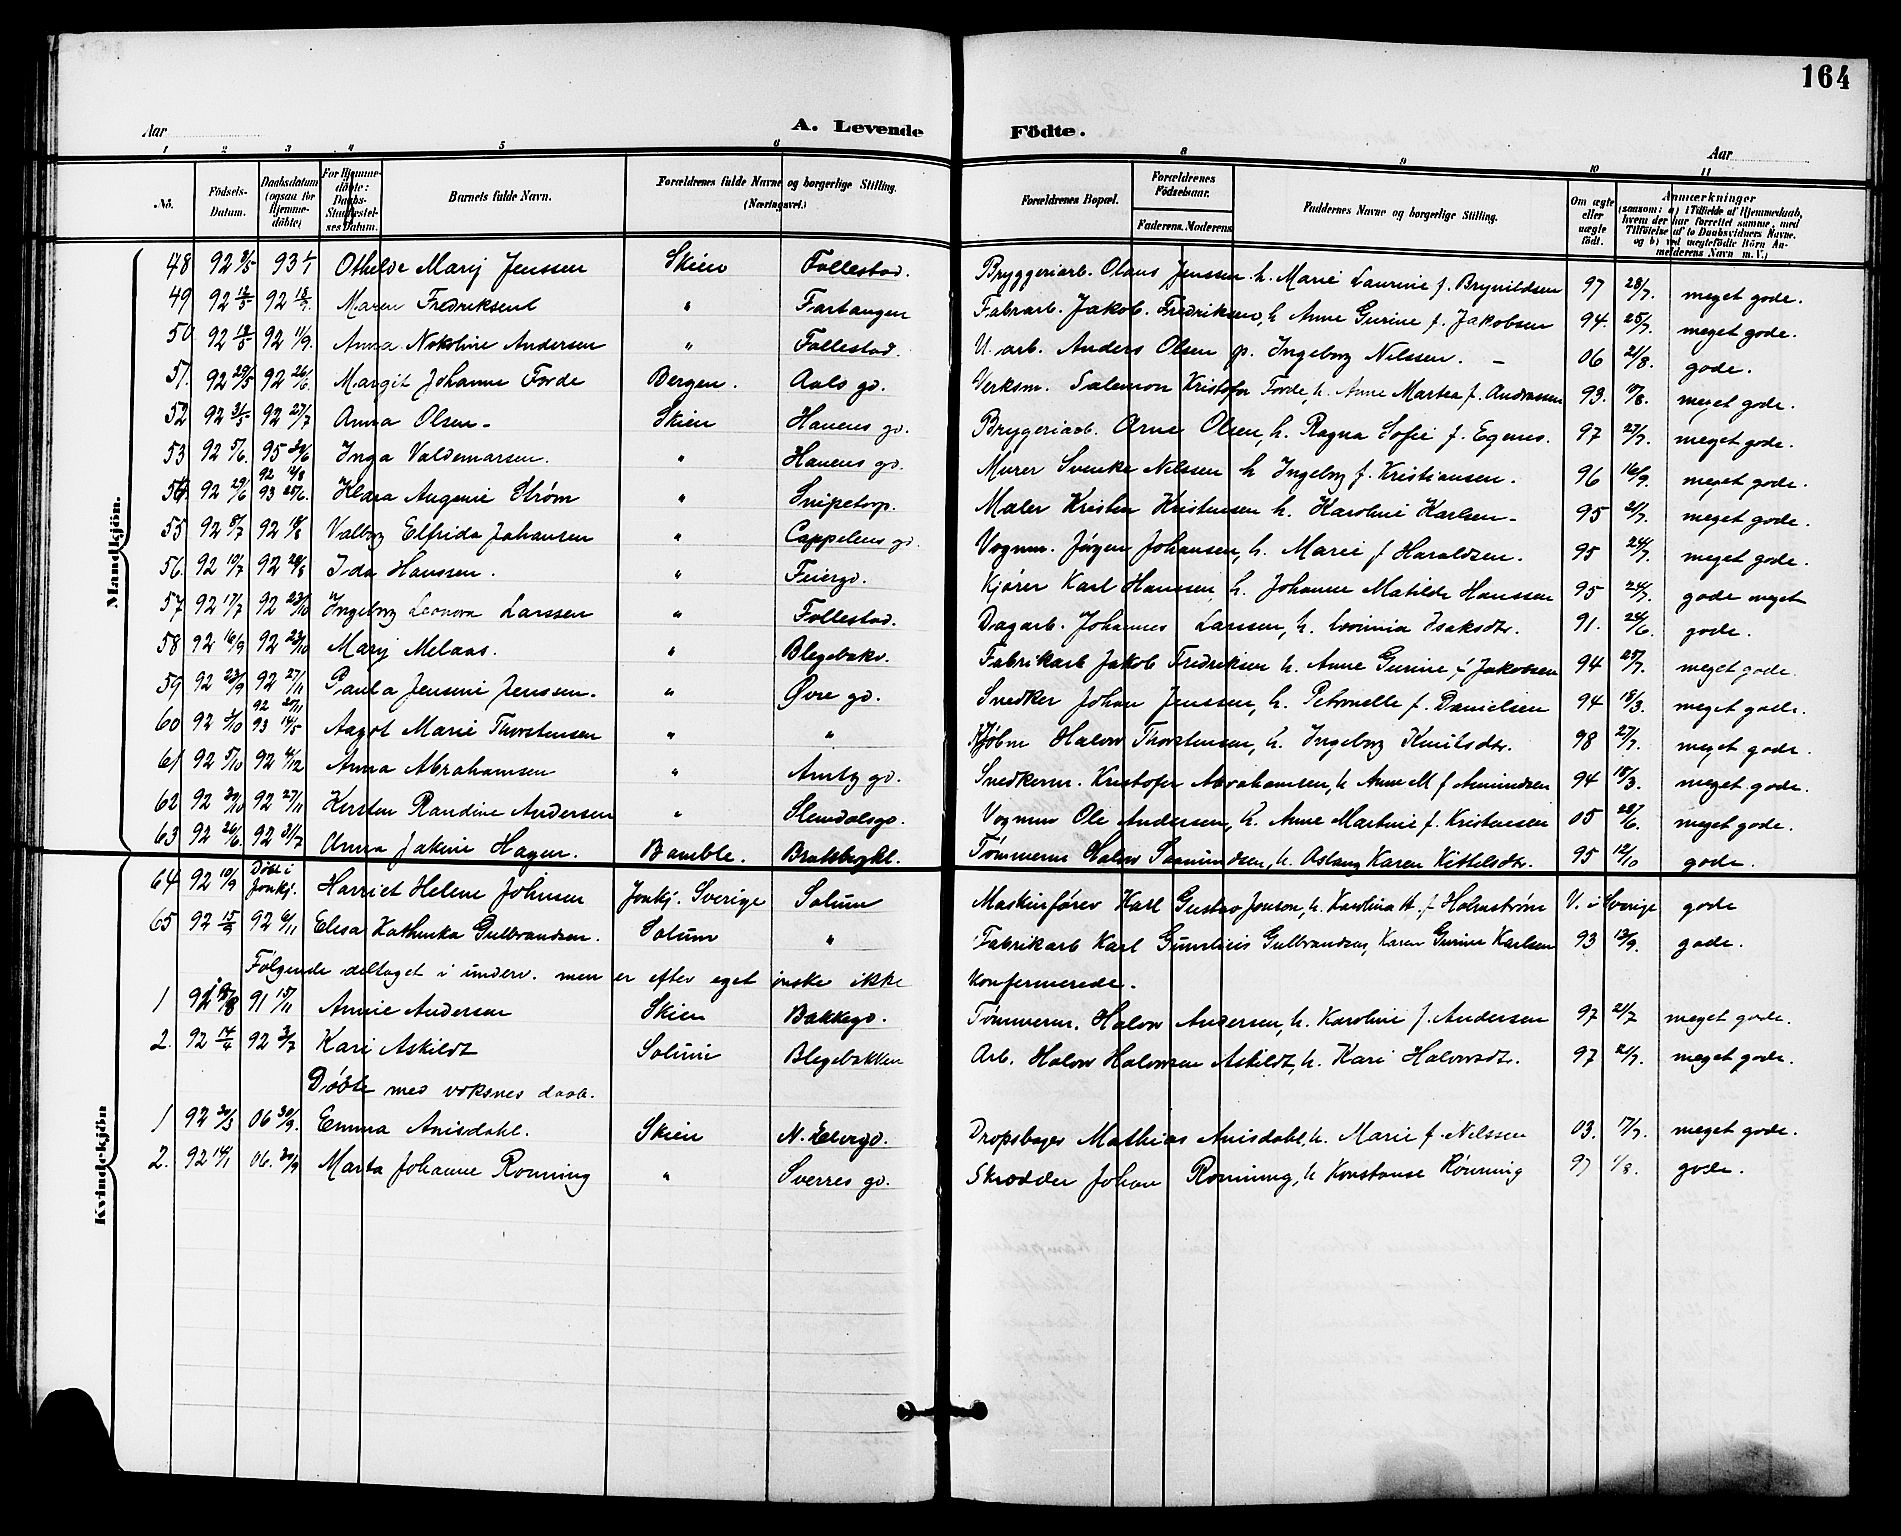 164
Aar
A. Levende
Födte.
Aar
1 2 3 4 5 6 8 9 10 11
.No.
Födsels-Datum.
Daabsdatum (ogsaa for Hjemme-döbte)
For Hjemme-döbte: Daabs-Stadfæstel-ses Datum.
Barnets fulde Navn.
Forældrenes fulde Navne og borgerlige Stilling. (Næringsvei.)
Forældrenes Bopæl.
Forældrenes Födselsaar.
Faderens. Moderens
Faddernes Navne og borgerlige Stilling.
Om ægte eller uægte födt.
Anmærkninger (saasom: a) i Tilfælde af Hjemmedaab, hvem der har forrettet samme, med Tilföielse af to Daabsvidners Navne, og b) ved uægtefödte Börn An-melderens Navn m. V.)
Mandkjön.
48 92 9/5 93 1/1 Othilde Marij Jenssen Skien Follestad. Bryggeriarb. Olaus Jenssen h. Marie Laurine f. Brynildsen 97 28/7. meget gode.
49 92 12/5 92 18/9 Maren Fredriksen " Fartangen Fabrarb. Jakob. Fredriksen, h. Anne Gurine f. Jakobsen 94. 25/7. meget gode.
50 92 18/5 92 11/9. Anna Nokoline Andersen " Follestad. U. arb. Anders Olsen p. Ingeborg Nilssen. - 06 21/8. gode.
51. 92 29/5 92 26/6. Margit Johanne Forde Bergen. Aals gd. Verksm. Salemon Kristofer Forde, h. Anne Martea f. Andrassen 93. 18/8. meget gode.
52 92 31/5 92 27/7 Anna Olsen - Skien Hanens gd. Bryggeriarb. Arne Olsen, h. Ragna Sofie f. Egenes. 97 27/7. meget gode.
53 92 5/6. 95 30/6 Inga Valdemarsen. " Hanens gd. Murer Svenke Nilssen h Ingeborg f. Kristiansen. 96 16/9. meget gode.
54. 92 29/6 92 14/8 93 25/6. Klara Augenie Strøm " Snipetorp. Maler Kristen Kristensen h. Karoline Karlsen - 95 21/7. meget gode.
55 92 8/7 92 18/8 Valborg Elfrida Johansen " Cappelens gd. Vognm. Jørgen Johansen, h. Marie f Haraldsen. 95 24/7. meget gode.
56. 92 10/7 92 28/8 Ida Hanssen. " Feiergd. Kjører Karl Hansen, h. Johanne Matilde Hanssen 95 24/7. gode meget
57 92 17/7 92 23/10 Ingeborg Leonora Larssen " Follestad. Dagarb. Johannes Larssen, h. Lovinia Isaksdtr. 91. 26/6. gode.
58 92 16/9 92 23/10 Marij Melaas. " Blegebakv. Fabrikarb Jakob Fredriksen h. Anne Gurine f Jakobsen 94 25/7. meget gode.
59 92 23/9 92 27/11 Paula Jensine Jenssen. " Øvre gd. Snedker Johan Jenssen, h. Petronelle f. Danielsen 94 18/3. meget gode.
60 92 3/10 92 27/11 93 14/5 Aagot Marie Thorstensen " " Kjøbm Halvor Thorstensen, h. Ingeborg Knutsdtr. 98 27/7. meget gode.
61 92 5/10 92 4/12 Anna Abrahamsen " Amtg gd. Snedkerm. Kristofer Abrahamsen, h Anne M f Amundsen 94 18/3. meget gode.
62 92 30/10 92 27/11 Kirsten Randine Andersen " Slemdalsgd. Vognm Ole Andersen, h. Anne Martine f. Kristensen 05 28/6. meget gode.
63 92 26/6. 92 31/7 Anna Jakine Hagen. Bamble. Bratsbergkl. Tømmerm Halvor Saamundsen, h. Aslaug Karen Kittelsdtr. 95 12/10 gode.
Kvindekjön
64 92 10/9 Døbt i Jonkj. Harriet Helene Johnsen Jonkj. Sverige Solum Maskinfører Karl Gustav Jonson, h. Karolina H. f Holmstrøm V. i Sverige gode
65 92 15/9 92 6/11 Elisa Kathinka Gulbrandsen. Solum " Fabrikarb Karl Gulbrandsen, Karen Gurine Karlsen 93 13/9. gode.
Følgende deltaget i underv. men er efter eget ønske ikke konfermerede.
1 92 18/8 91 15/11 Annie Andersen Skien Bakkegd. Tømmerm. Halvor Andersen, h. Karoline f. Andersen 97 21/7 meget gode.
2. 92 14/4 92 3/7 Kari Askildt Solum Blegebakken Arb. Halvor Halvorsen Askildt, h. Kari Halvorsdtr. 97 21/7. meget gode.
Døbte med voksnes daab.
1 92 30/3 06 30/9. Emma Anisdahl. Skien N. Elvegd. Dropsbager Mathias Anisdahl, h. Marie f. Nilssen 03. 17/7. meget gode.
2. 92 14/1 06. 30/9 Marta Johanne Ronning " Sverres gd. Skrædder Johan Ronning, h Konstanse Rönning 97 1/8. gode.